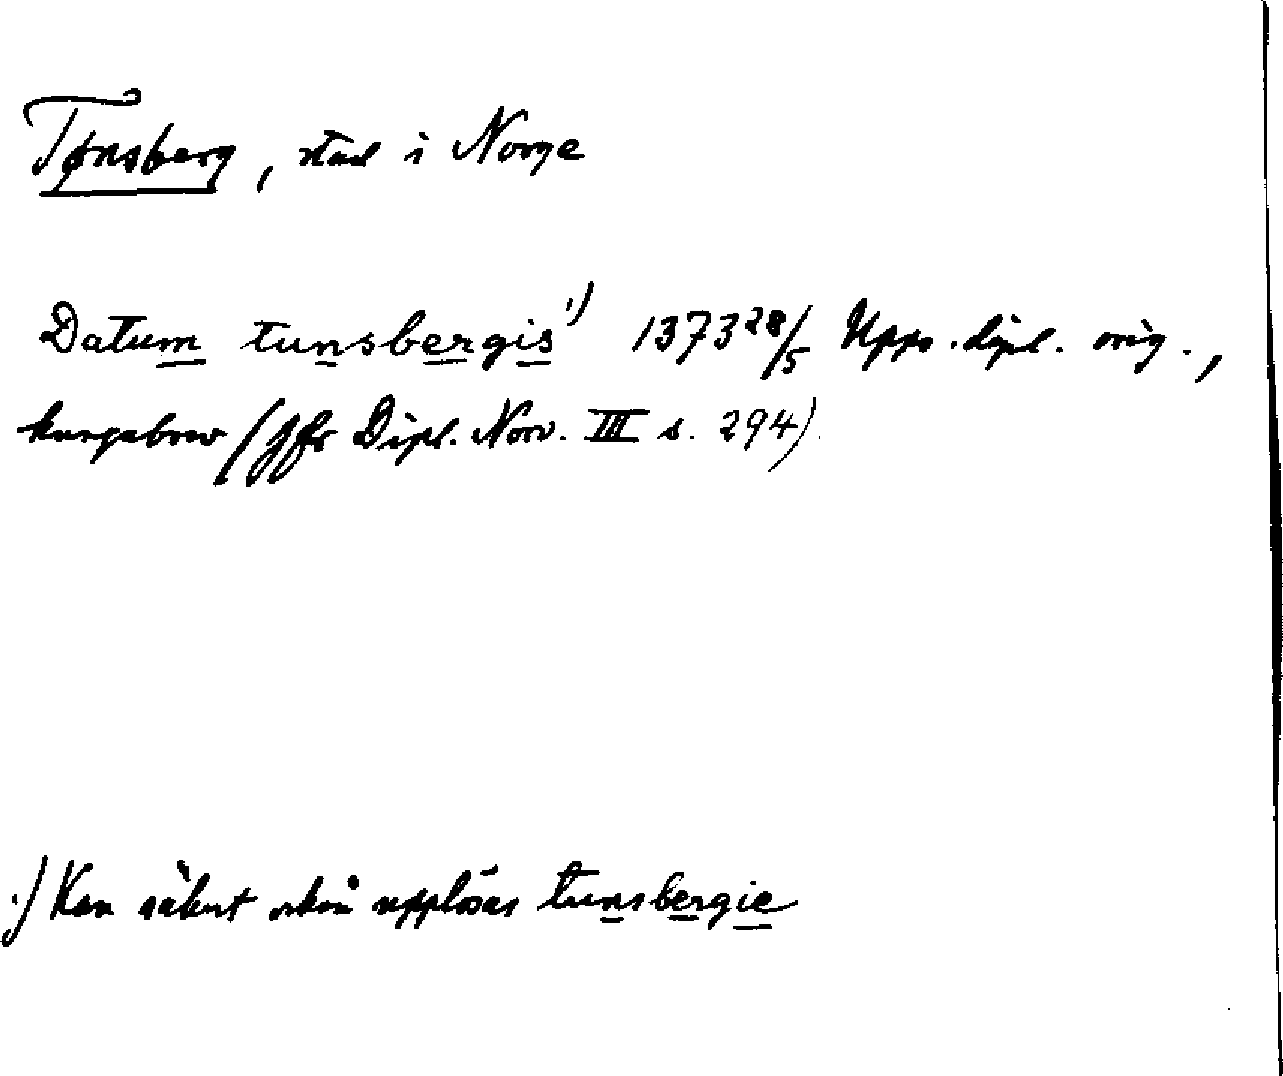 Tønsberg, stad i Norge
Datum tunsbergis 1) 1373 28/5 Upps. dipl. orig.,
kungabrev (Jfr Dipl. Norv. III s. 294)
1) Kan säkert också upplösas tunsbergie